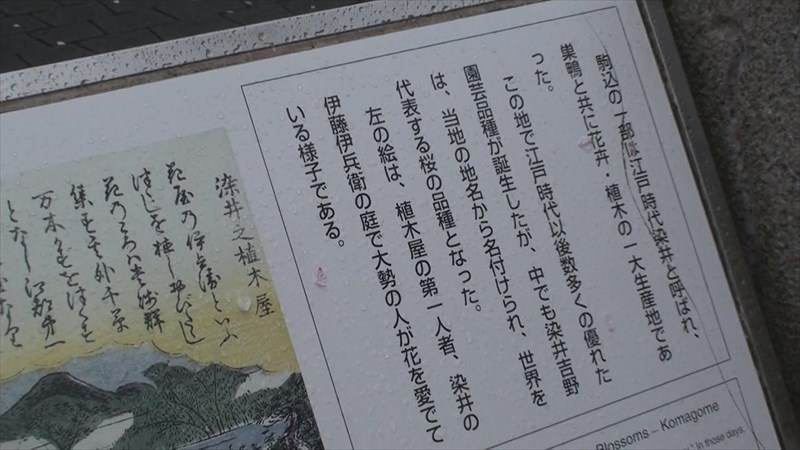 駒込の一部は江戸時代染井と呼ばれ、
巣鴨と共に花卉・植木の一大生産地であ
った。
この地で江戸時代以後数多くの優れた
園芸品種が誕生したが、中でも染井吉野
は、当地の地名から名付けられ、世界を
代表する桜の品種となった。
左の絵は、植木屋の第一人者、染井の
伊藤伊兵衛の庭で大勢の人が花を愛でて
いる様子である。
染井之植木屋
Blossoms – Komagome
In those days,